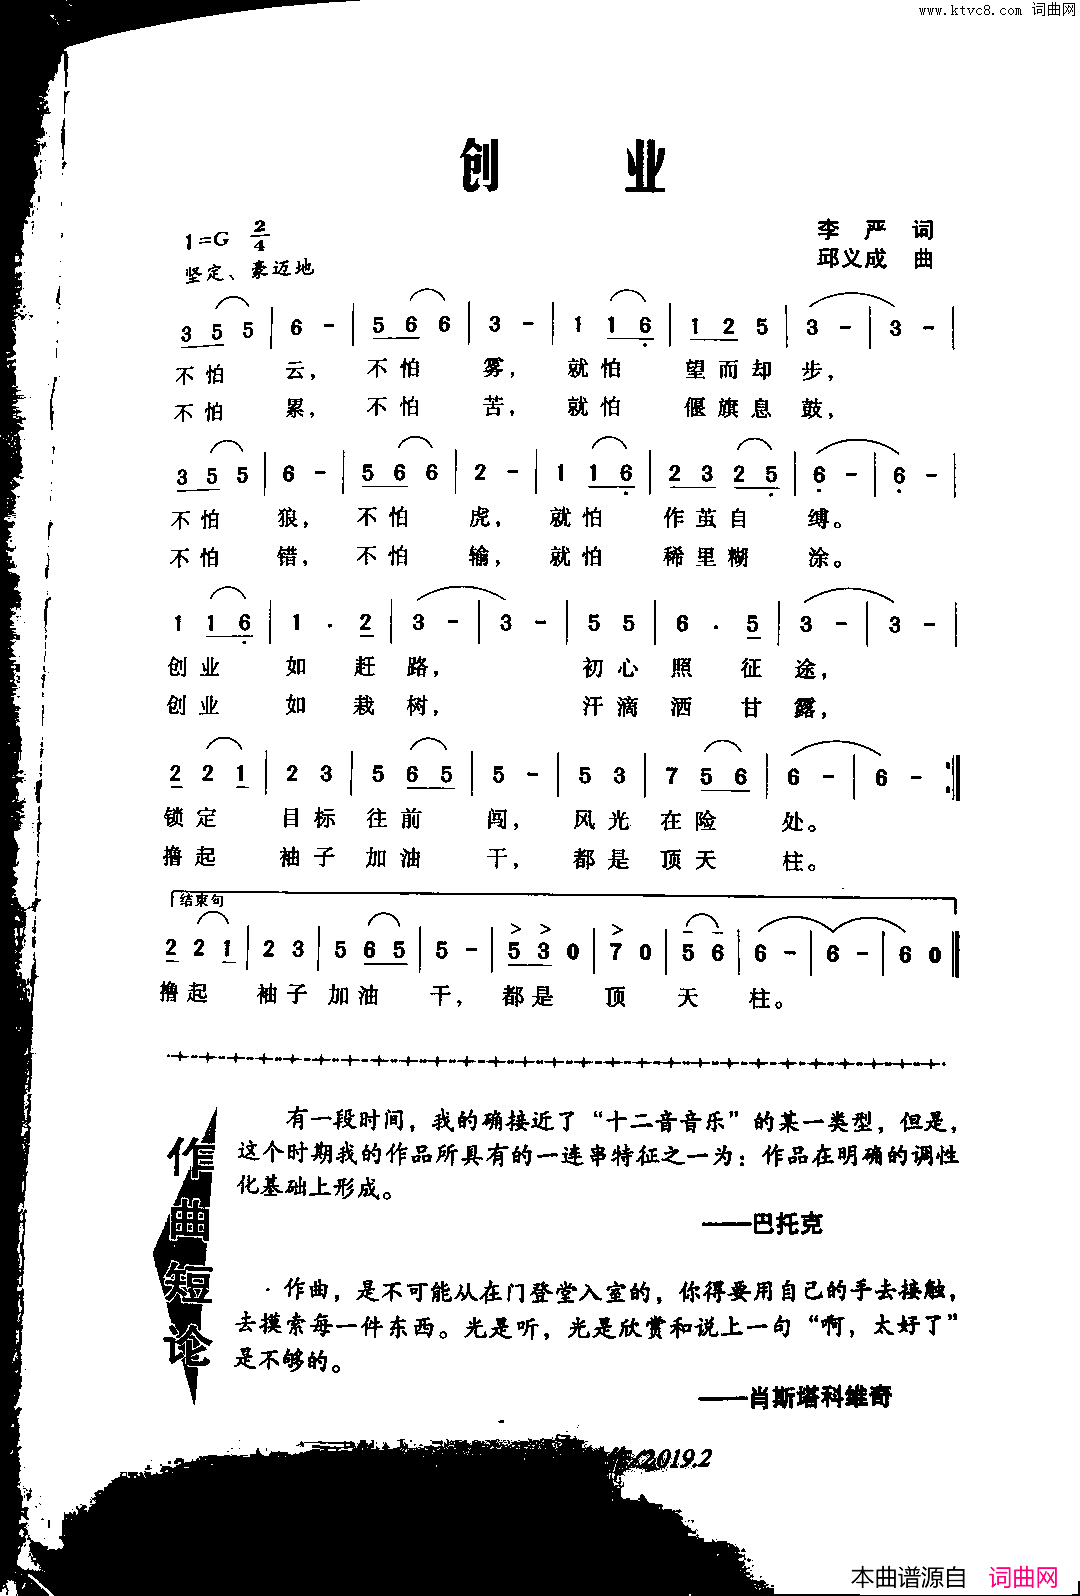 www.ktvc8.com 词曲网
创 业
1=G 2/4
李 严 词
坚定、豪迈地
邱义成 曲
3 5 5 | 6 - | 5 6 6 | 3 - | 1 1 6 | 1 2 5 | 3 - | 3 - |
不 怕 云， 不 怕 雾， 就 怕 望 而 却 步，
不 怕 累， 不 怕 苦， 就 怕 偃 旗 息 鼓，
3 5 5 | 6 - | 5 6 6 | 2 - | 1 1 6 | 2 3 2 5 | 6 - | 6 - |
不 怕 狼， 不 怕 虎， 就 怕 作 茧 自 缚。
不 怕 错， 不 怕 输， 就 怕 稀 里 糊 涂。
1 1 6 | 1 . 2 | 3 - | 3 - | 5 5 | 6 . 5 | 3 - | 3 - |
创 业 如 赶 路， 初 心 照 征 途，
创 业 如 栽 树， 汗 滴 洒 甘 露，
2 2 1 | 2 3 | 5 6 5 | 5 - | 5 3 | 7 5 6 | 6 - | 6 - :||
锁 定 目 标 往 前 闯， 风 光 在 险 处。
撸 起 袖 子 加 油 干， 都 是 顶 天 柱。
结束句
2 2 1 | 2 3 | 5 6 5 | 5 - | 5 3 0 | 7 0 | 5 6 | 6 - | 6 - | 6 0 ||
撸 起 袖 子 加 油 干， 都 是 顶 天 柱。
作曲短论
有一段时间，我的确接近了“十二音音乐”的某一类型，但是，
这个时期我的作品所具有的一连串特征之一为：作品在明确的调性
化基础上形成。
——巴托克
·作曲，是不可能从在门登堂入室的，你得要用自己的手去接触，
去摸索每一件东西。光是听，光是欣赏和说上一句“啊，太好了”
是不够的。
——肖斯塔科维奇
/2019.2
本曲谱源自 词曲网